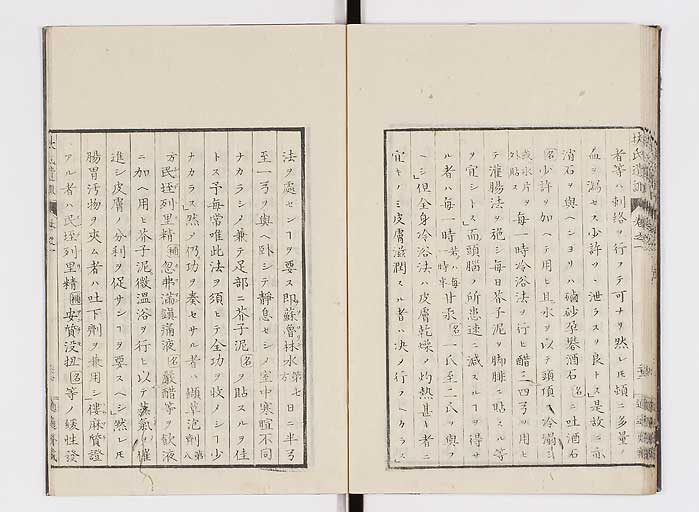 者等ハ刺絡ヲ行フテ可ナリ然レ𪜈頓ニ多量ノ
血ヲ漏セス少許ツヽ泄ラスヲ良トス是故ニ亦
消石ヲ與ヘンヨリハ磠砂 礬酒石名ニ吐酒石
名少許ヲ加ヘテ用ヒ且氷ヲ以テ頭頂ヲ冷溺シ
或氷片ヲ外貼ス毎一時冷浴法ヲ行ヒ醋三四弓ヲ用ヒ
テ灌腸法ヲ施シ毎日芥子泥ヲ脚腓ニ貼スル等
ヲ宜シトス而頭腦ノ所患速ニ減スルヿヲ得サ
ル者ハ毎一時若ハ毎一時半甘汞名一氏至二氏ヲ與フ
ヘシ但全身冷浴法ハ皮膚乾燥ノ灼熱甚キ者ニ
宜キノミ皮膚滋潤スル者ハ决ノ行フヘカラス
法ヲ處センヿヲ要ス即蘇魯林水第七方日ニ半弓
至一弓ヲ與ヘ臥シテ靜息セシメ室中寒暄不同
ナカラシメ兼テ足部ニ芥子泥名ヲ貼スルヲ佳
トス予毎常唯此法ヲ須ヒテ全功ヲ收メシヿ少
ナカラス然ノ仍功ヲ奏セサル者ハ纈草泡劑第八
方民埵列里精補忽弗滿鎮痛液名嚴醋等ヲ飲液
ニ加ヘ用ヒ芥子泥微温浴ヲ行ヒ以テ蒸氣ヲ催
進シ皮膚ノ分利ヲ促サンヿヲ要スヘシ然レ𪜈
腸胃汚物ヲ夾ム者ハ吐下劑ヲ兼用シ僂麻質證
アル者ハ民埵列里精補安質没扭名等ノ緩性發